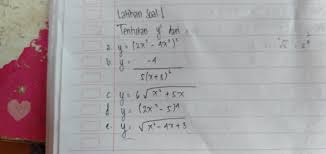 Latihan Soal !
Tentukan y' dari :
a. y = (2x² - 4x³)²
b. y = -4
5(x+3)⁶
c. y = 6√x² + 5x
d. y = (2x³ - 5)⁴
e. y = √x² - 4x + 3